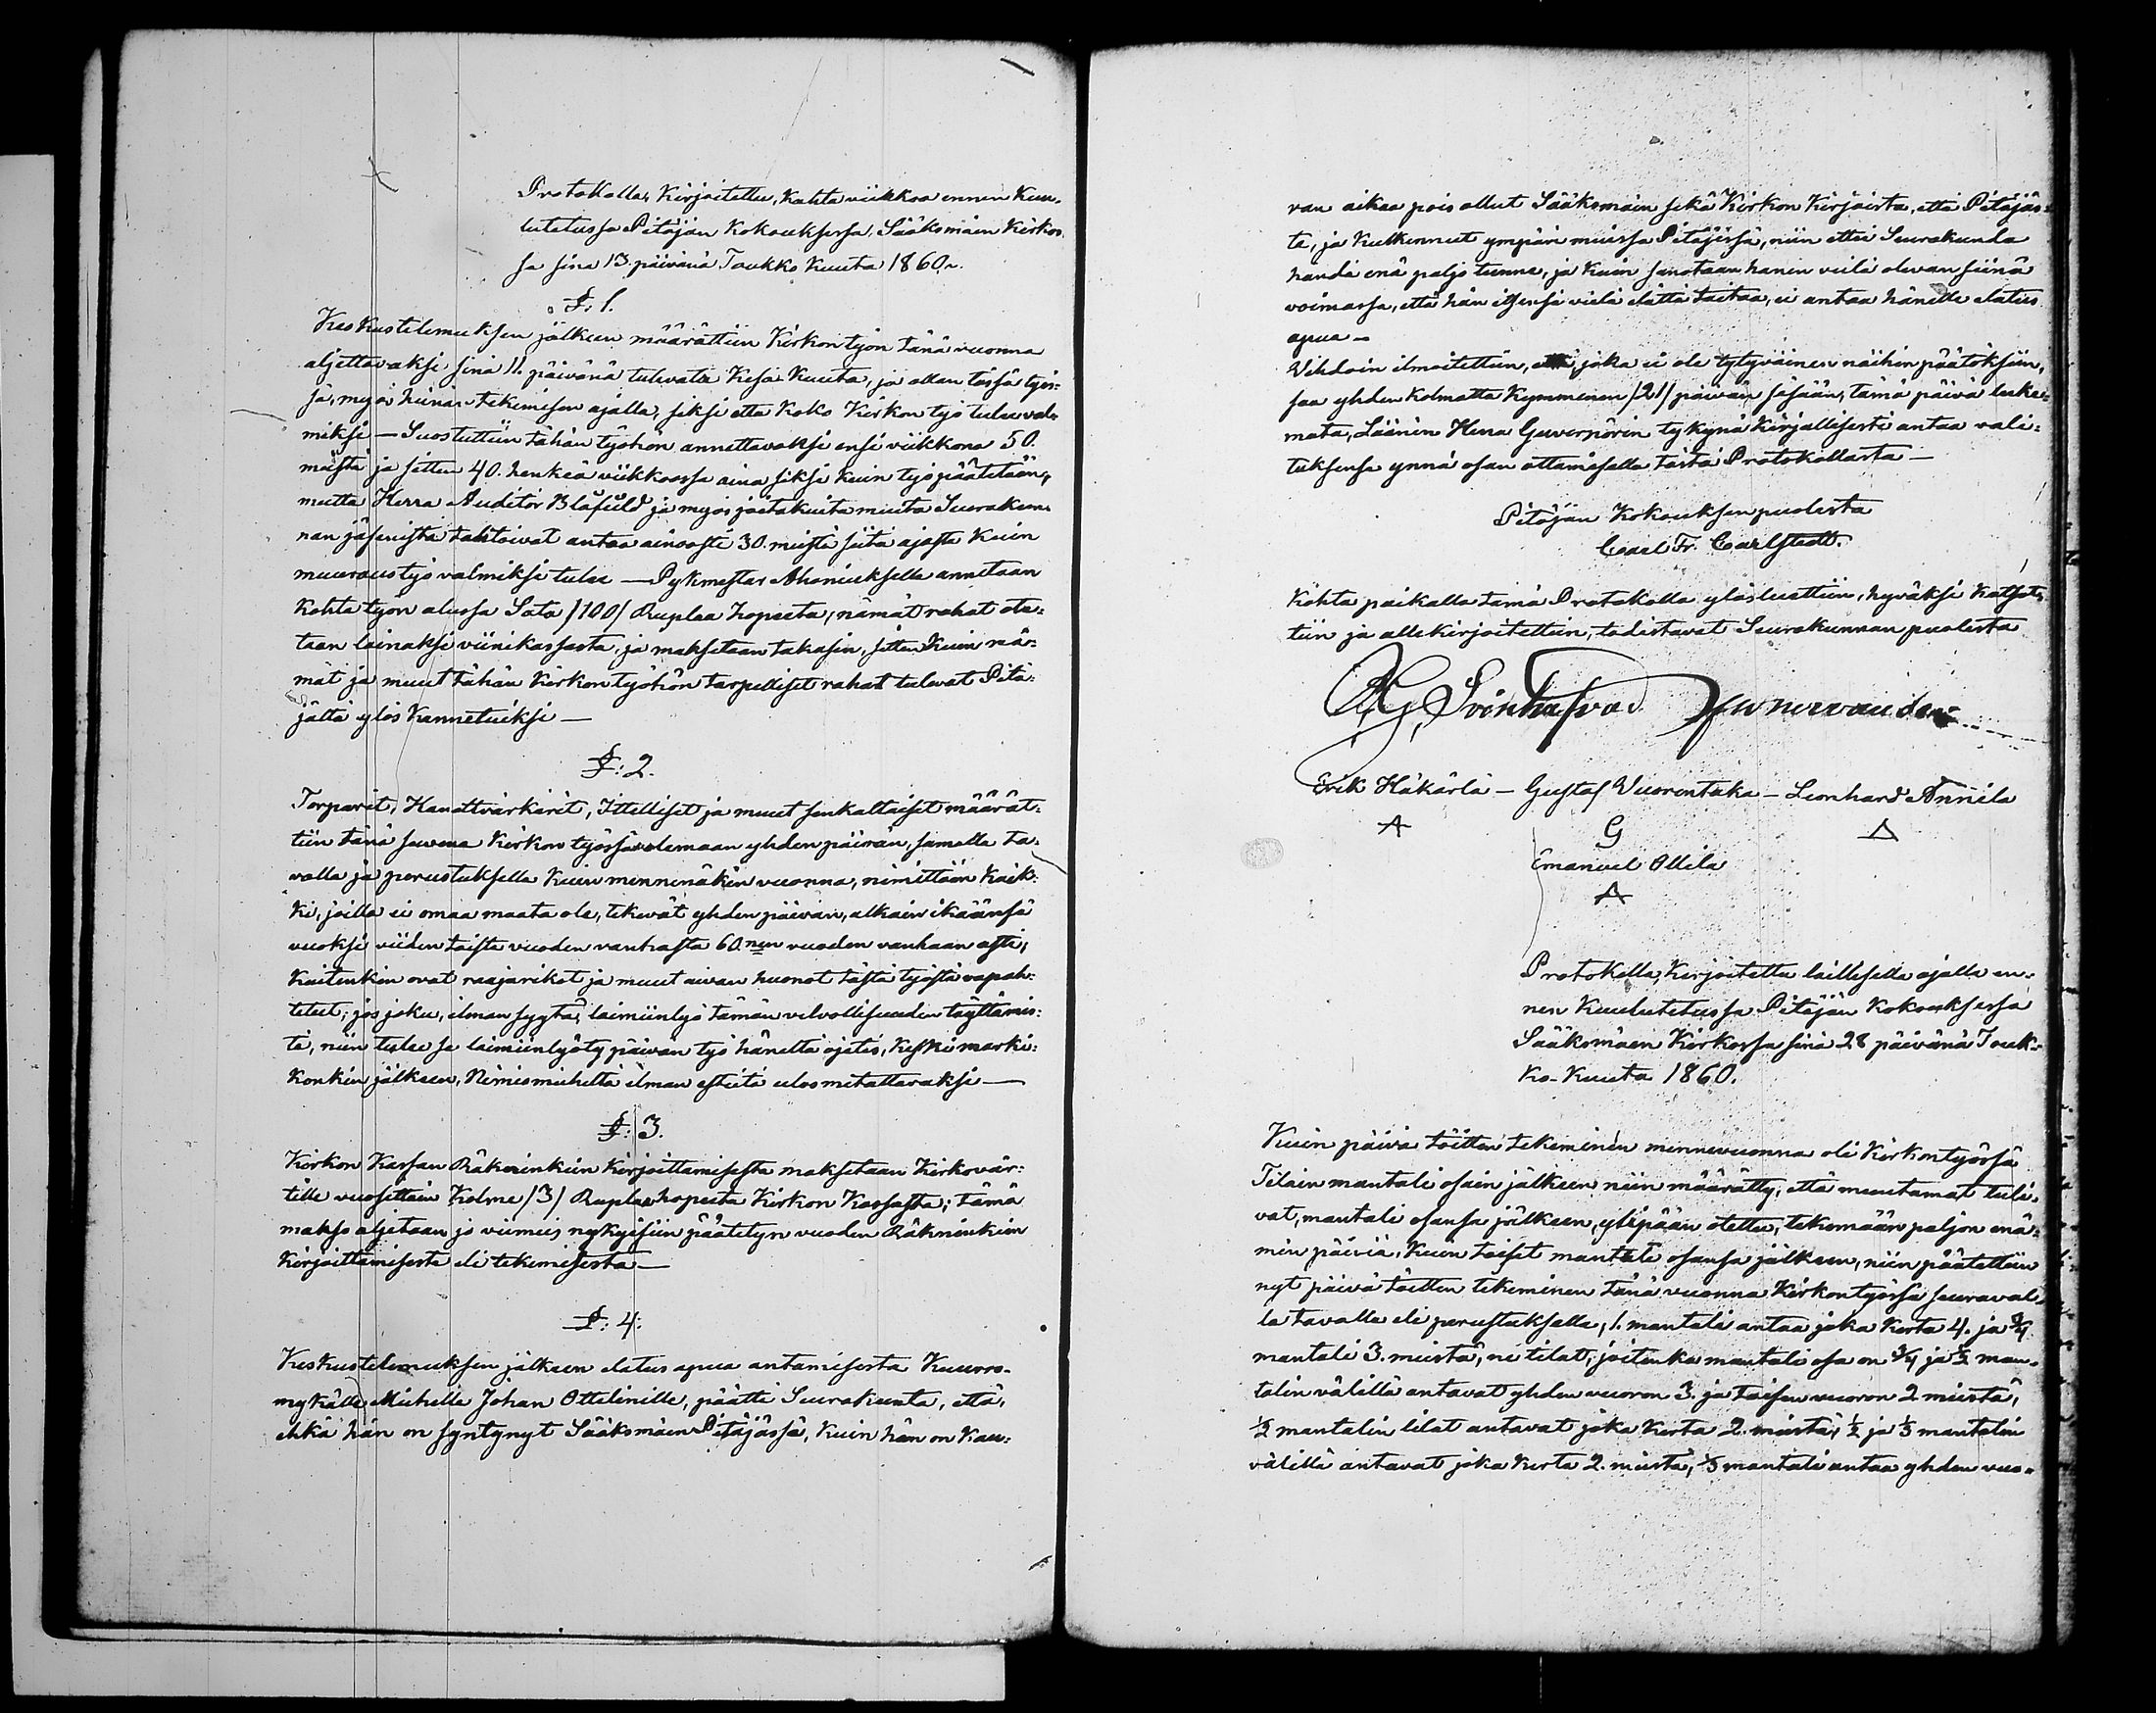 Protokolla, Kirjoitettu, Kahta viikkoa ennen Kuu-
lutetussa Pitäjän Kokouksessa, Sääksmäen Kirkos-
sa sinä 13 päivänä Toukko Kuuta 1860.
§: 1.
Keskustelemuksen jälkeen määrättiin Kirkon työn tänä vuonna
aljettavaksi sinä 11. päivänä tulevata Kesä Kuuta, ja ollan tässä työs-
sä, myös heinän tekemisen ajalla, siksi että koko Kirkon työ tulee val-
miksi — Suostuttiin tähän työhön annettavaksi ensi viikkona 50.
miestä ja sitten 40. henkeä viikkoossa aina siksi kuin työ päätetään,
mutta Herra Auditor Blåfield ja myös joitakuita muita Seurakun-
nan jäsenistä tahtoivat antaa ainoasti 30. miestä siitä ajasta kuin
muuraus työ valmiksi tulee — Bykmestar Aheniukselle annetaan
kohta työn alussa Sata /100/ Ruplaa hopeeta, nämät rahat ote-
taan lainaksi viinikassasta, ja maksetaan takasin, sitten kuin nä-
mät ja muut tähän Kirkon työhön tarpelliset rahat tulevat Pitä-
jältä ylös kannetuiksi —
§: 2.
Torparit, Hanttvärkärit, Ittelliset ja muut senkaltaiset määrät-
tiin tänä suvena Kirkon työssä olemaan yhden päivän, samalla ta-
valla ja perustuksella kuin mennenäkin vuonna, nimittäin kaik-
ki, joilla ei omaa maata ole, tekevät yhden päivän, alkain ikäänsä
vuoksi viiden toista vuoden vanhasta 60.nen vuoden vanhaan asti;
kuitenkin ovat raajarikot ja muut aivan huonot tästä työstä vapah-
tetut; jos joku, ilman syytä, laimiinlyö tämän velvollisuuden täyttämis-
tä, niin tulee se laimiinlyöty päivän työ häneltä ojetis, keski marki-
konkin jälkeen, Nimismieheltä ilman esteitä ulosmitattavaksi —
§: 3.
Kirkon Kassan Räkninkein kirjoittamisesta maksetaan Kirkovär-
tille vuosittain Kolme /3/ Ruplaa hopeeta Kirkon Kassasta; tämä
makso aljetaan jo viimeis nykyisiin päätetyn vuoden Räkninkein
kirjoittamisesta eli tekemisestä —
§: 4:
Keskustelemuksen jälkeen elatus apua antamisesta Kuuro-
mykälle Miehelle Johan Ottelinille, päätti Seurakunta, että,
ehkä hän on syntynyt Sääksmäen Pitäjässä, kuin hän on kau-
van aikaa pois ollut Sääksmäen sekä Kirkon Kirjoista, että Pitäjäs-
tä, ja kulkennut ympäri muissa Pitäjissä, niin ettei Seurakunda
händä enä paljo tunne, ja kuin sanotaan hänen vielä olevan siinä
voimassa, että hän itsensä vielä elättä taitaa, ei antaa hänelle elatus
apua —
Wihdoin ilmoitettiin, että, joka ei ole tytyväinen näihin päätöksiin,
saa yhden kolmatta kymmenen /21/ päivän sisään, tämä päivä luke-
mata, Läänin Herra Guvernörin tykynä kirjallisesti antaa vali-
tuksensa ynnä osan ottamisella tästä Protokollasta —
Pitäjän Kokouksen puolesta
Carl Fr. Carlstedt.
Kohta paikalla tämä Protokolla ylösluettiin, hyväksi katsot-
tiin ja allekirjoitettiin, todistavat Seurakunnan puolesta
Svinhufvud
Erik Häkärlä — Gustaf Vuorentaka — Leonhard Annila
A G Δ
Emanuel Ollila
A
Protokolla, Kirjoitettu laillisella ajalla en-
nen Kuulutetussa Pitäjän Kokouksessa
Sääksmäen Kirkossa sinä 28 päivänä Touk-
ko-Kuuta 1860.
Kuin päivä töitten tekeminen mennevuonna oli Kirkontyössä
Tilain mantali osain jälkeen niin määrätty, että muutamat tuli-
vat, mantali osansa jälkeen, ylipään otettu, tekemään paljon enä-
min päiviä, kuin toiset mantali osansa jälkeen, niin päätettiin
nyt päivä töitten tekeminen tänä vuonna Kirkontyössä seuraval-
la tavalla eli perustuksella, 1. mantali antaa joka kerta 4. ja ¾
mantali 3. miestä, ne tilat, joitenka mantali osa on ¾ ja ½ man-
talin välillä antavat yhden vuoron 3. ja toisen vuoron 2 miestä,
½ mantalin tilat antavat joka kerta 2. miestä, ½ ja ⅓ mantalin
välillä antavat joka kerta 2. miestä, ⅓ mantali antaa yhden vuo-